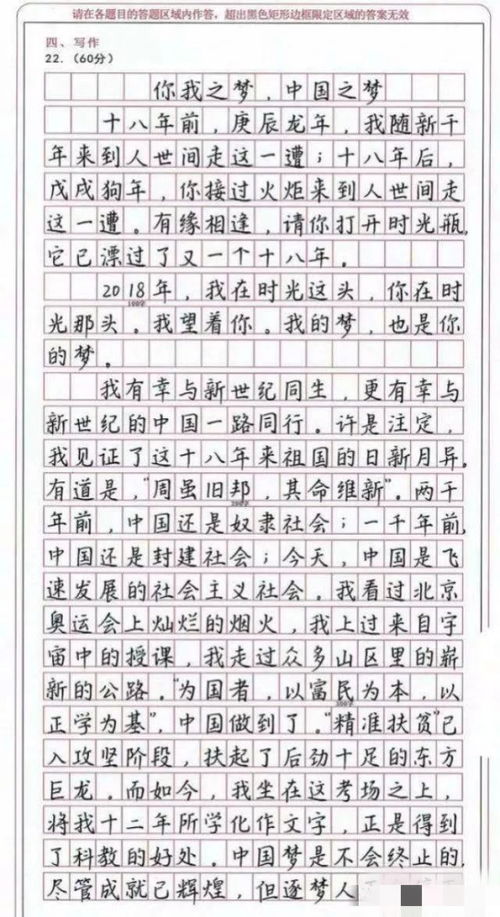 请在各题目的答题区域内作答，超出黑色矩形边框限定区域的答案无效
四、写作
22．（60分）
你我之梦，中国之梦
十八年前，庚辰龙年，我随新千
年来到人世间走这一遭；十八年后，
戊戌狗年，你接过火炬来到人世间走
这一遭。有缘相逢，请你打开时光瓶，
它已漂过了又一个十八年。
2018年，我在时光这头，你在时
100字
光那头。我望着你。我的梦，也是你
的梦。
我有幸与新世纪同生，更有幸与
新世纪的中国一路同行。许是注定，
我见证了这十八年来祖国的日新月异。
有道是，“周虽旧邦，其命维新”。两千
200字
年前，中国还是奴隶社会；一千年前，
中国还是封建社会；今天，中国是飞
速发展的社会主义社会。我看过北京
奥运会上灿烂的烟火，我上过来自宇
宙中的授课，我走过众多山区里的崭
新的公路。“为国者，以富民为本，以
300字
正学为基”，中国做到了。“精准扶贫”已
入攻坚阶段，扶起了后劲十足的东方
巨龙。而如今，我坐在这考场之上，
将我十二年所学化作文字，正是得到
了科教的好处。中国梦是不会终止的，
尽管成就已辉煌，但逐梦人